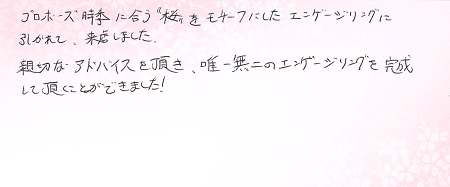 プロポーズ時季に合う“桜”をモチーフにしたエンゲージリングに
引かれて、来店しました。
親切なアドバイスを頂き、唯一無二のエンゲージリングを完成
して頂くことができました!